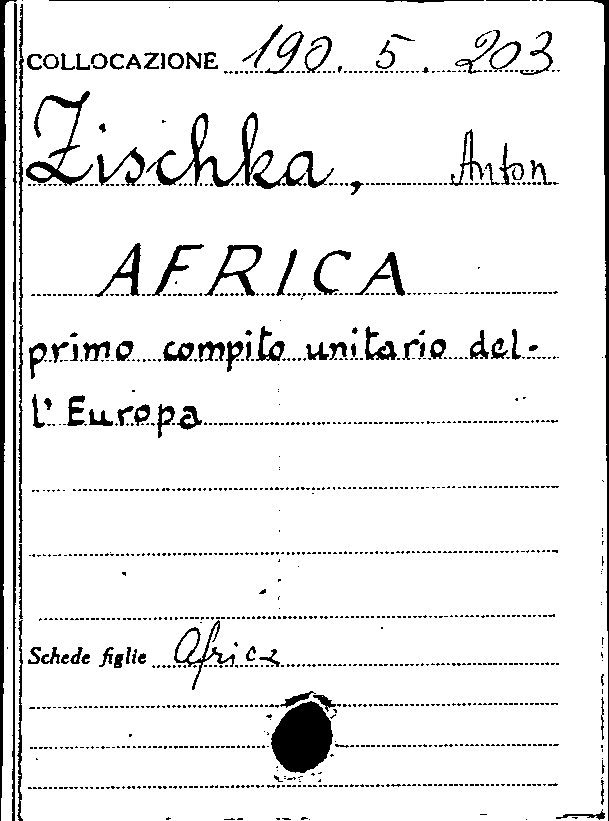 COLLOCAZIONE 190. 5. 203
Zischka, Anton
AFRICA
primo compito unitario del-
l'Europa
Schede figlie Africa